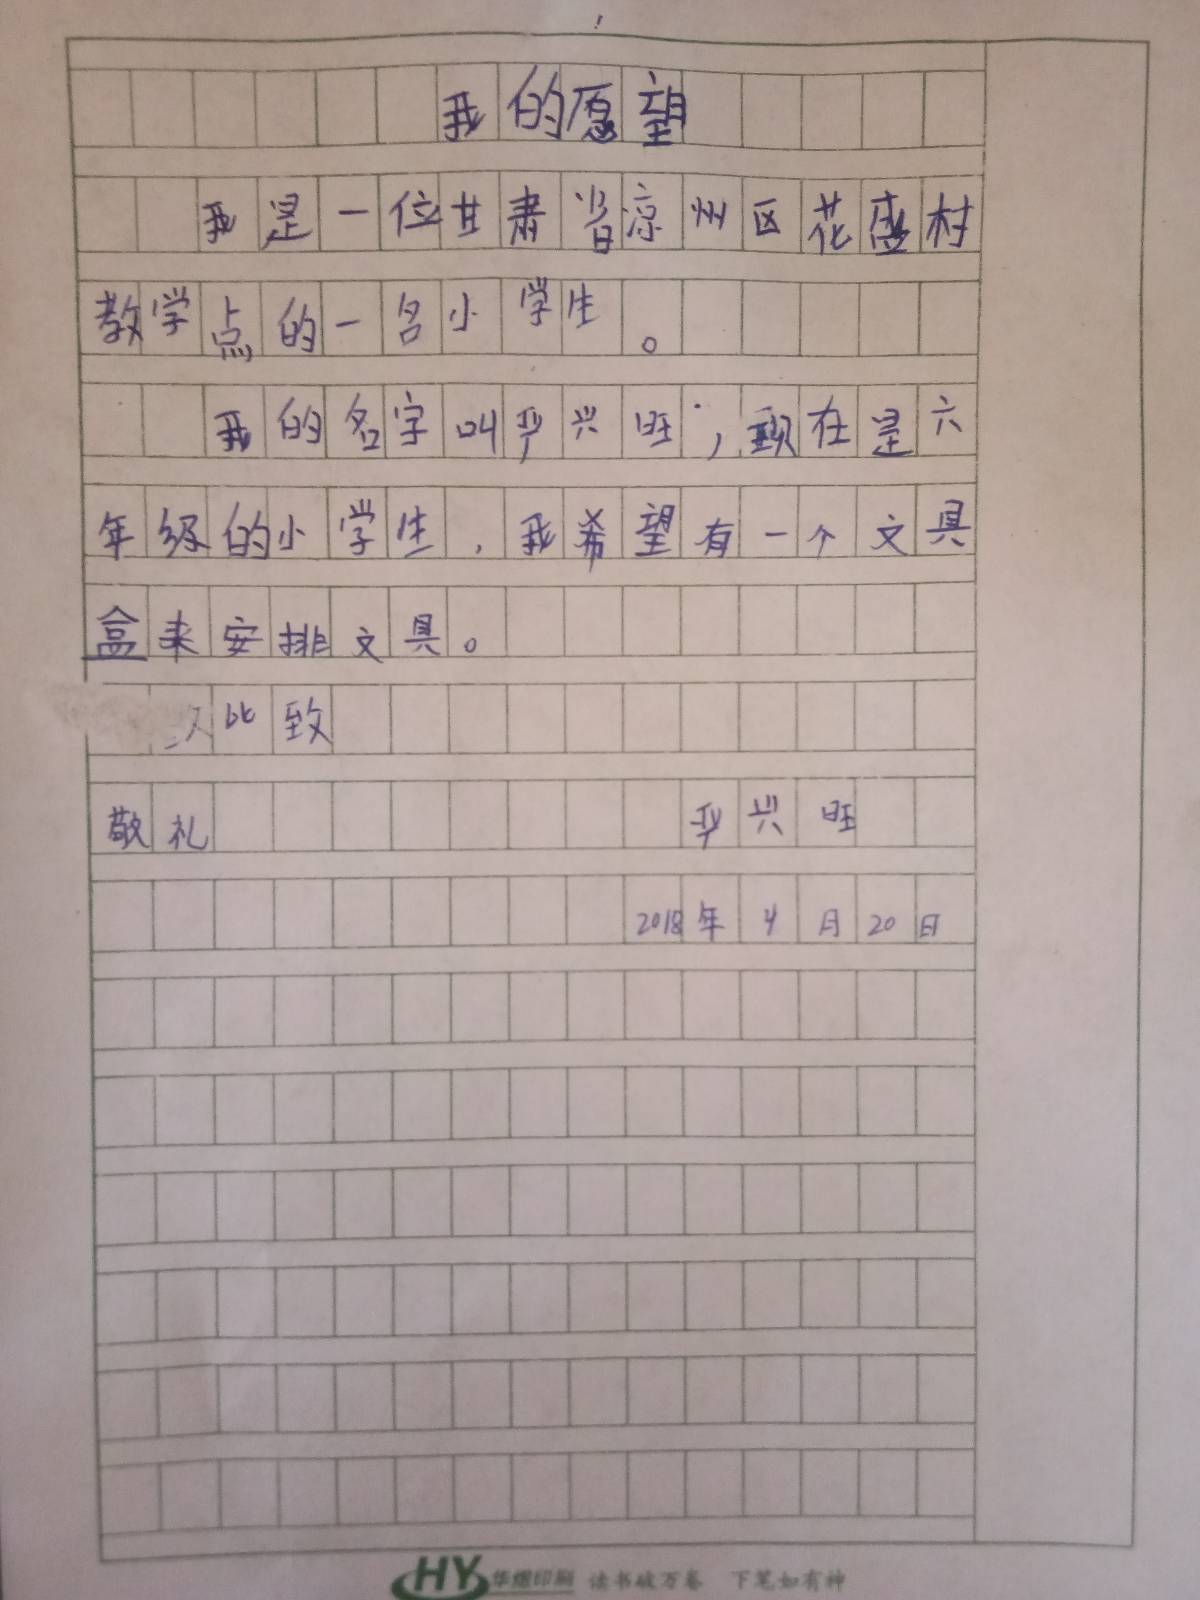 我的愿望
我是一位甘肃省凉州区花盛村
教学点的一名小学生。
我的名字叫严兴旺,现在是六
年级的小学生,我希望有一个文具
盒来安排文具。
比致
敬礼 严兴旺
2018年4月20日
HY 华煜印刷 读书破万卷 下笔如有神